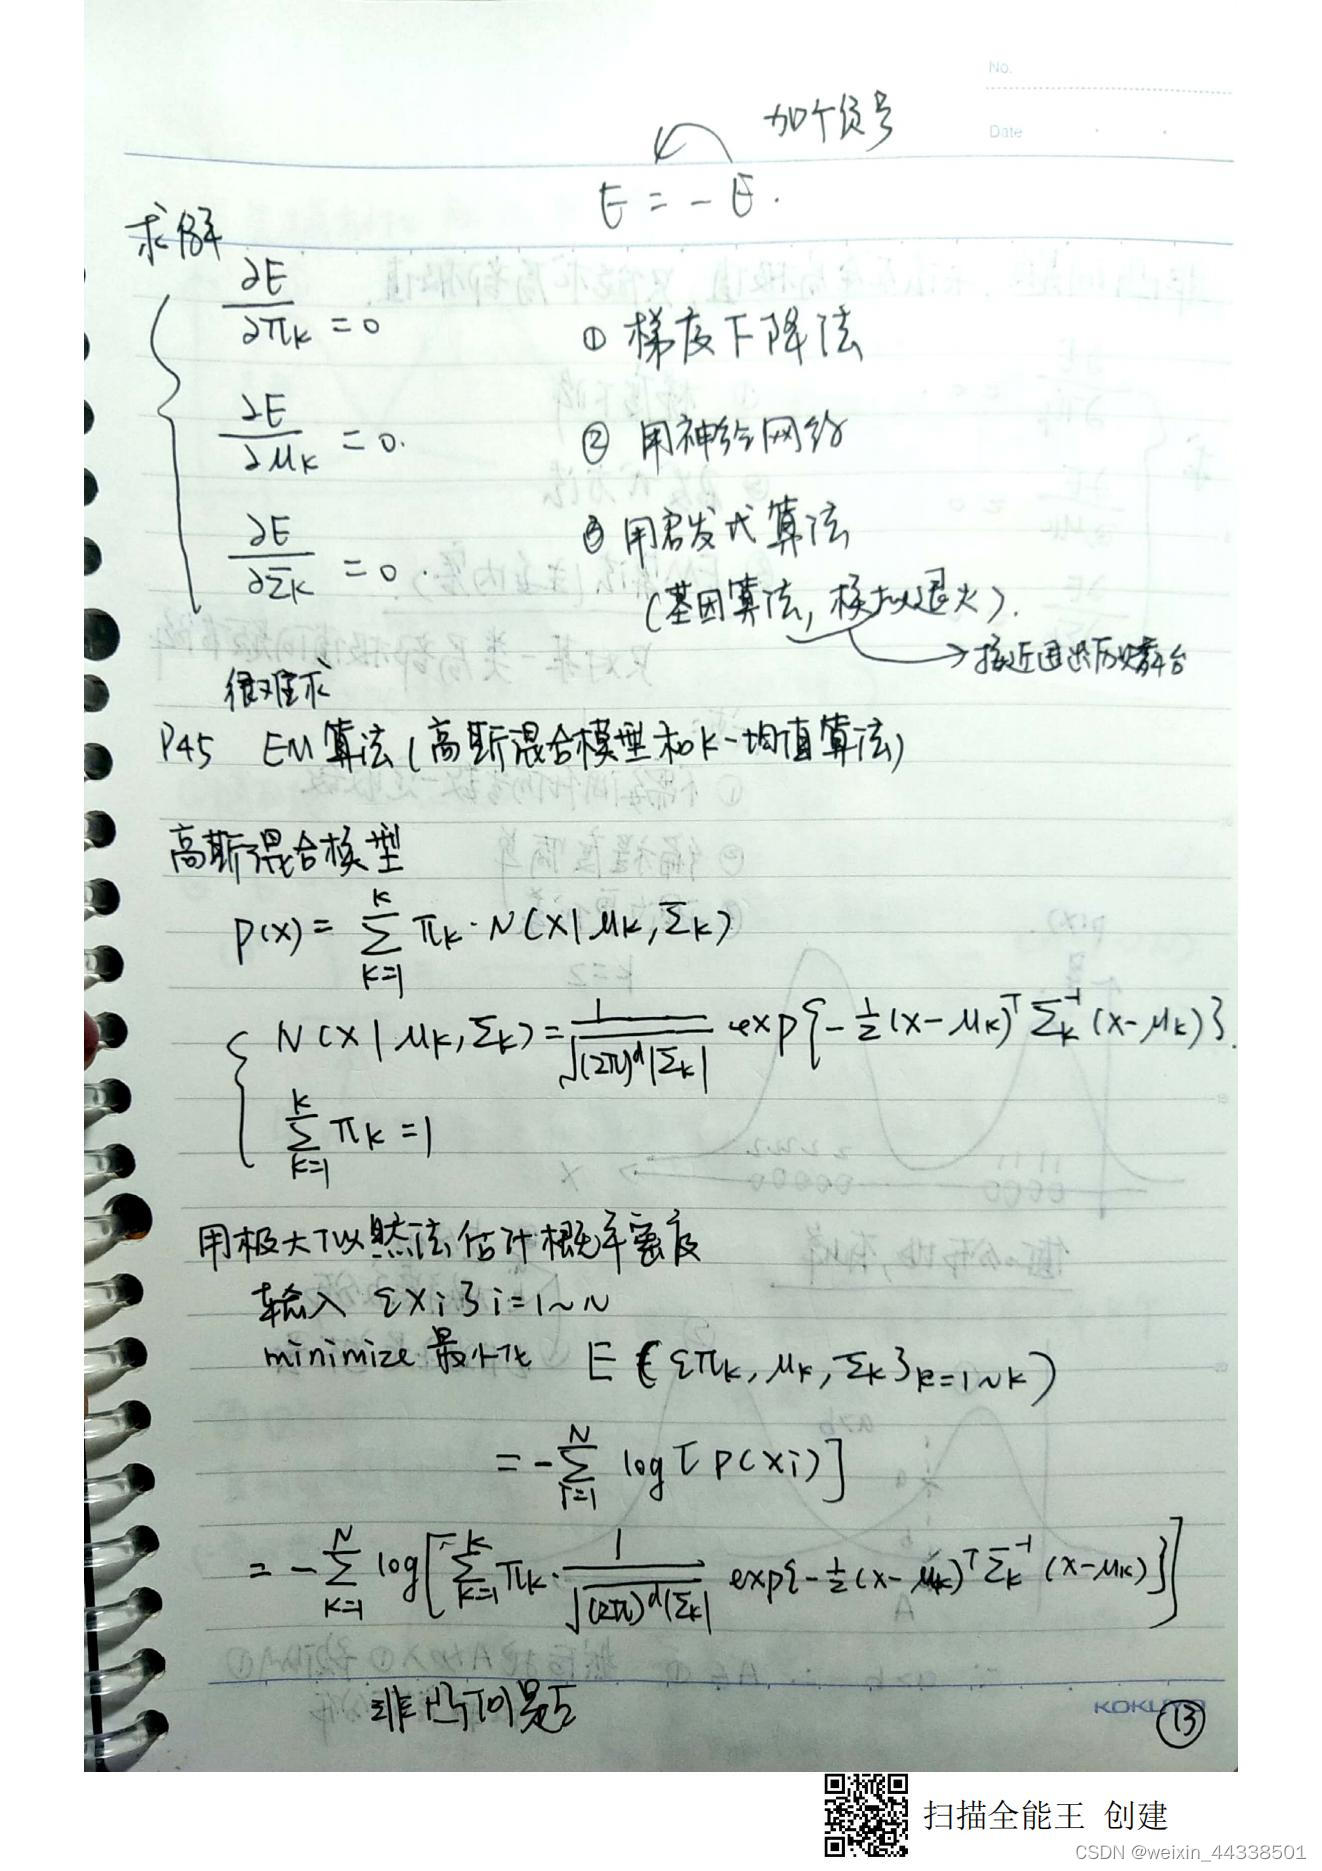 No.
加个负号
Date
E = - E.
求解
∂E/∂πk = 0
① 梯度下降法
∂E/∂μk = 0.
② 用神经网络
∂E/∂Σk = 0.
③ 用启发式算法
(基因算法, 模拟退火).
→接近退出历史舞台
很难求
P45 EM算法(高斯混合模型和K-均值算法)
高斯混合模型
P(x) = Σ_{k=1}^{K} πk · N(x|μk, Σk)
{ N(x|μk, Σk) = 1/√((2π)^d|Σk|) exp{-½(x-μk)^T Σk^{-1} (x-μk)}.
Σ_{k=1}^{K} πk = 1
用极大似然法估计概率密度
输入 {xi} i=1~N
minimize 最小化 E({πk, μk, Σk}k=1~K)
= -Σ_{i=1}^{N} log[P(xi)]
= -Σ_{k=1}^{N} log[Σ_{k=1}^{K} πk · 1/√((2π)^d|Σk|) exp{-½(x-μk)^T Σk^{-1} (x-μk)}]
非凸问题
KOKUYO
13
扫描全能王 创建
CSDN @weixin_44338501